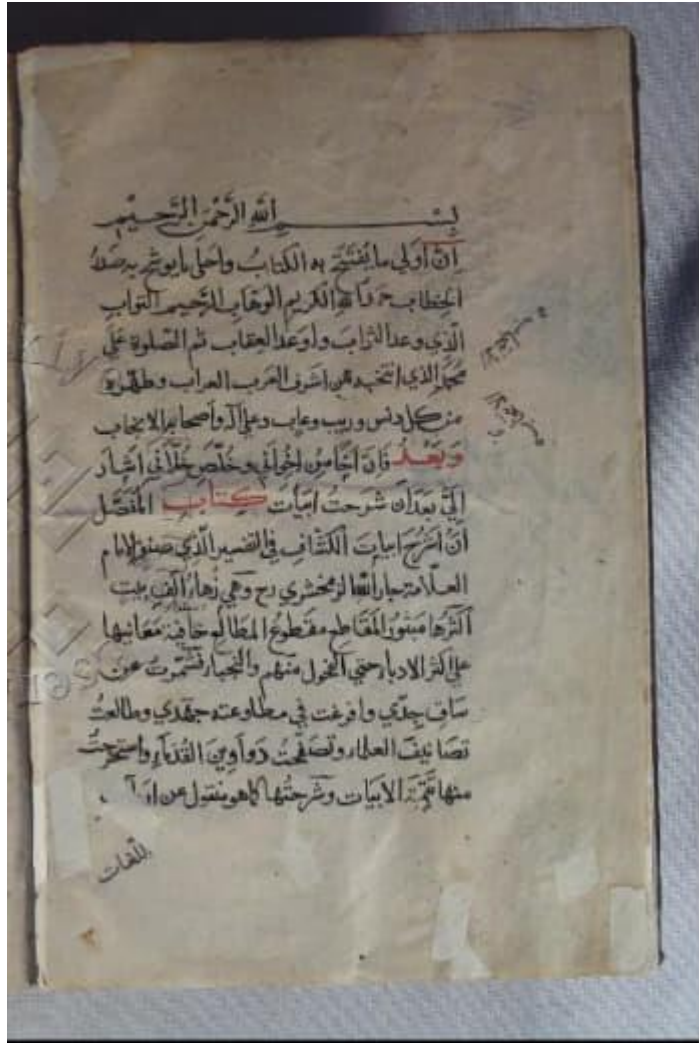 بسم الله الرحمن الرحيم
ان اولى ما يفتتح به الكتاب واحلى ما يوشح به صدر
الخطاب حمد الله الكريم الوهاب الرحيم التواب
الذي وعد الثواب واوعد العقاب ثم الصلوة على
محمد الذي انتخبه من اشرف العرب العراب وطهره
من كل دنس وريب وعاب وعلى آله واصحابه الانجاب
وبعد فان اخا من اخواني وخلص خلاني اشار
الي بعد ان شرحت ابيات كتاب المفصل
ان اشرح ابيات الكشاف في التفسير الذي صنفه الامام
العلامة جار الله الزمخشري رح وهي زهاء الف بيت
اكثرها مبثور المقاطع مقطوع المطالع خافية معانيها
على اكثر الادباء حتى الفحول منهم والنجباء فشمرت عن
ساق جدي وافرغت في مطاوعته جهدي وطالعت
تصانيف العلماء وتصفحت دواوين القدماء واستخرجت
منها تتمة الابيات وشرحتها كما هو منقول عن
اللغات